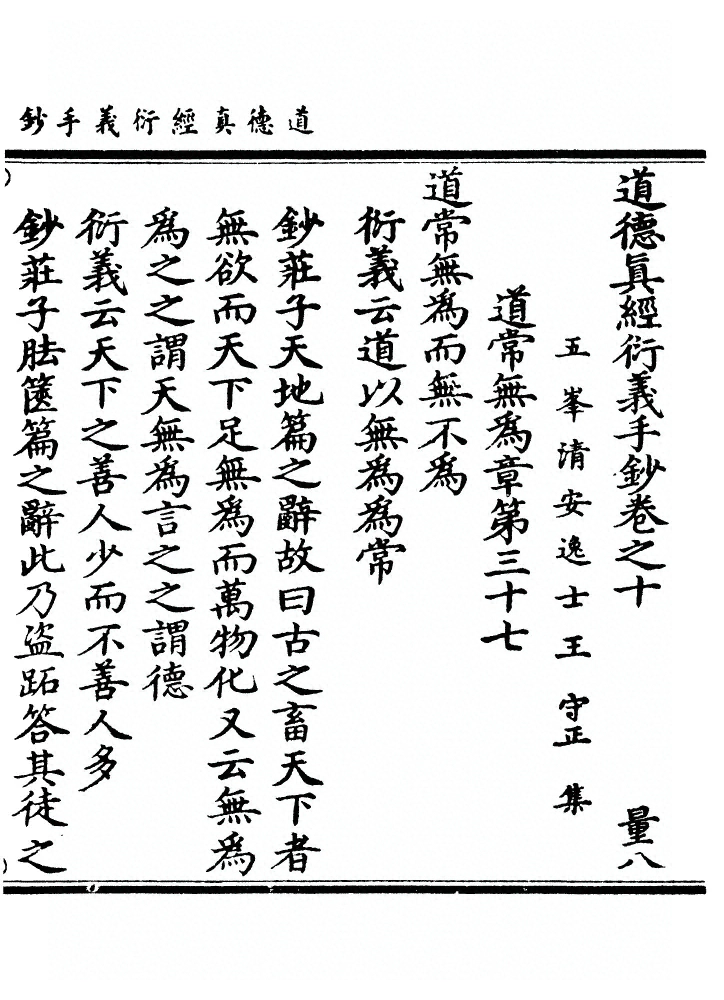 道德真經衍義手鈔
道德眞經衍義手鈔卷之十 量八
五峯清安逸士王守正集
道常無爲章第三十七
道常無爲而無不爲
衍義云道以無爲爲常
鈔莊子天地篇之辭故曰古之畜天下者
無欲而天下足無爲而萬物化又云無爲
爲之之謂天無爲言之之謂德
衍義云天下之善人少而不善人多
鈔莊子胠篋篇之辭此乃盜跖答其徒之